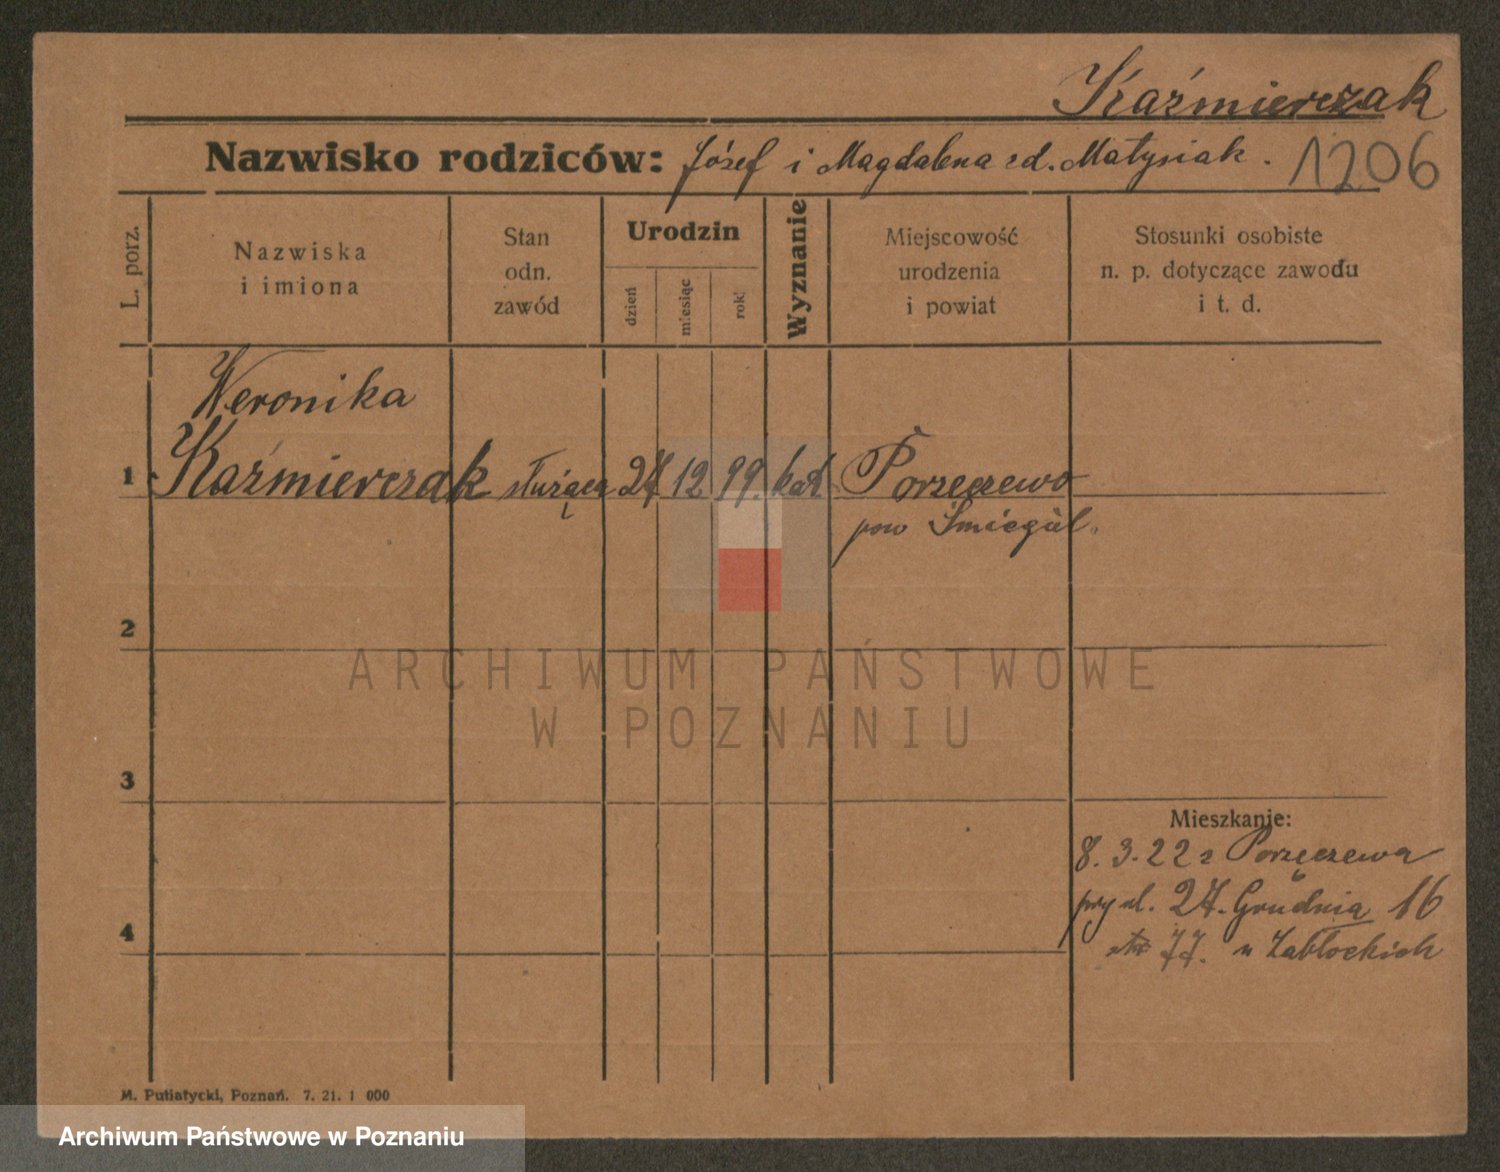 Kaźmierczak
Nazwisko rodziców: Józef i Magdalena zd. Matysiak.
1206
L. porz.
Nazwiska
i imiona
Stan
odn.
zawód
Urodzin
dzień
miesiąc
rok
Wyznanie
Miejscowość
urodzenia
i powiat
Stosunki osobiste
n. p. dotyczące zawodu
i t. d.
Weronika
1 Kaźmierczak służąca 27 12 99. kat. Porzeczewo
pow Śmiegiel.
2
ARCHIWUM PAŃSTWOWE
W POZNANIU
3
Mieszkanie:
8. 3. 22 z Porzęczewa
przy ul. 27. Grudnia 16
77. u Zabłockich
4
M. Putiatycki, Poznań. 7. 21. 1 000
Archiwum Państwowe w Poznaniu